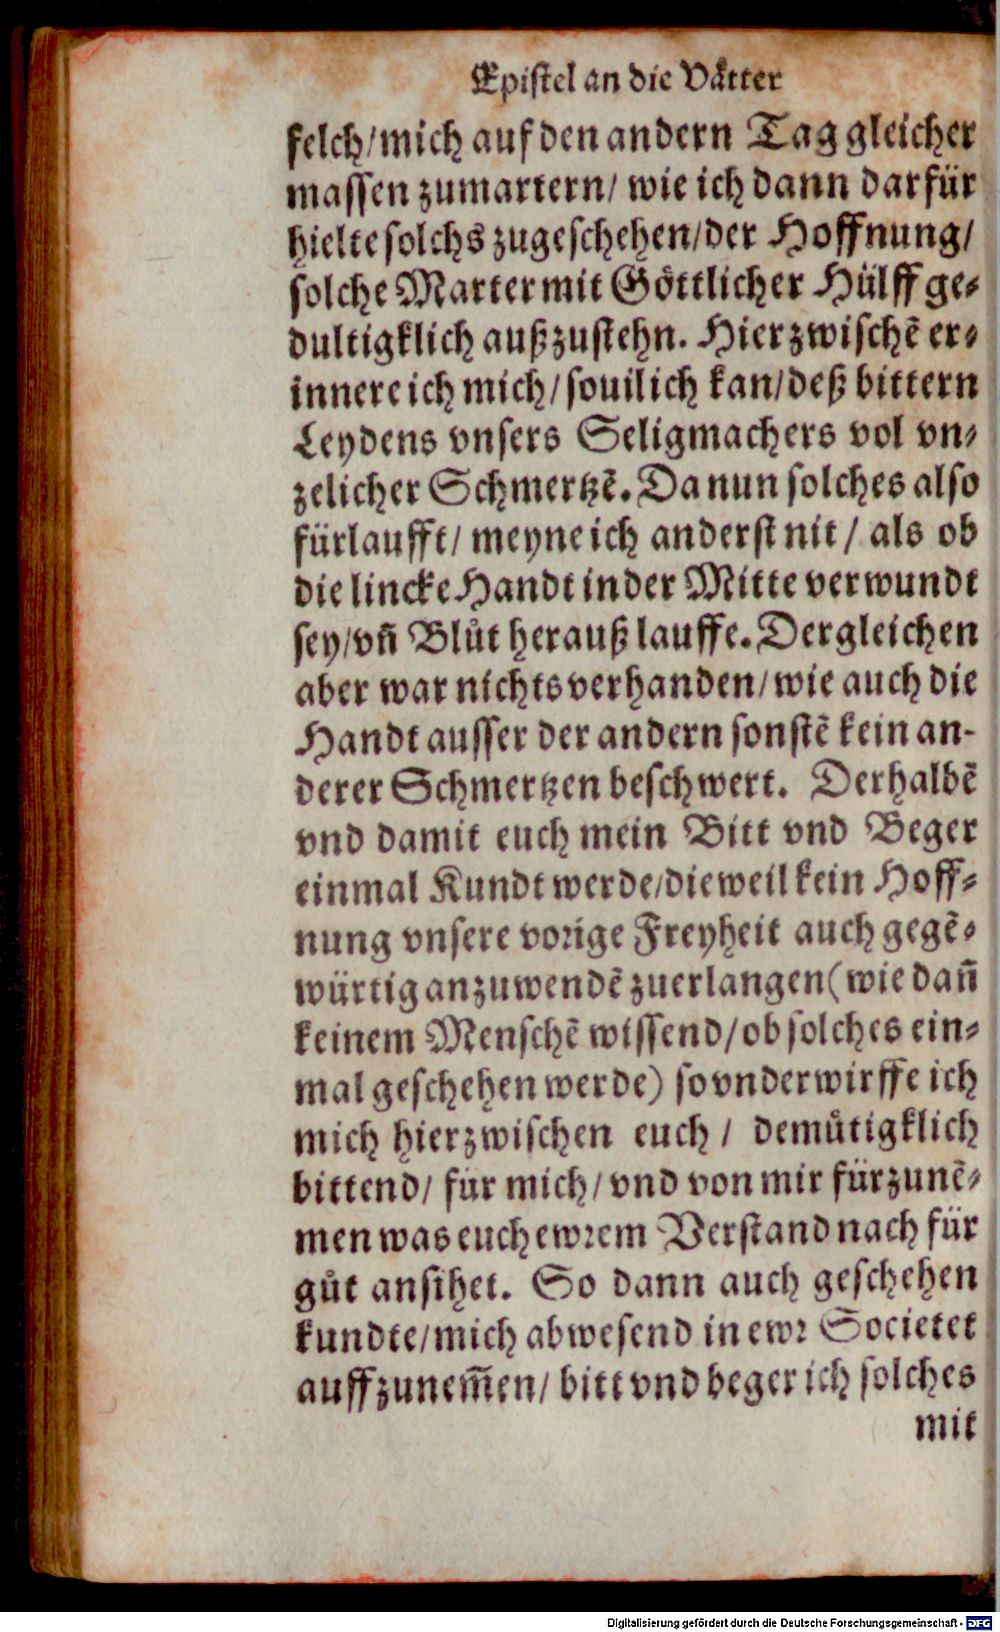 Epistel an die Våtter
felch/mich auf den andern Tag gleicher
massen zumartern/ wie ich dann darfür
hielte solchs zugeschehen/der Hoffnung/
solche Marter mit Göttlicher Hülff ge-
dultigklich außzustehn. Hierzwischē er-
innere ich mich/souil ich kan/deß bittern
Leydens vnsers Seligmachers vol vn-
zelicher Schmertzē. Da nun solches also
fürlaufft/ meyne ich anderst nit/ als ob
die lincke Handt in der Mitte verwundt
sey/vñ Blůt herauß lauffe. Dergleichen
aber war nichts verhanden/wie auch die
Handt ausser der andern sonstē kein an-
derer Schmertzen beschwert. Derhalbē
vnd damit euch mein Bitt vnd Beger
einmal Kundt werde/dieweil kein Hoff-
nung vnsere vorige Freyheit auch gegē-
würtig anzuwendē zuerlangen(wie dañ
keinem Menschē wissend/ob solches ein-
mal geschehen werde) so vnderwirffe ich
mich hierzwischen euch/ demůtigklich
bittend/ für mich/vnd von mir fürzunē-
men was euch ewrem Verstand nach für
gůt ansihet. So dann auch geschehen
kundte/mich abwesend in ewr Societet
auffzunem̄en/ bitt vnd beger ich solches
mit
Digitalisierung gefördert durch die Deutsche Forschungsgemeinschaft - DFG